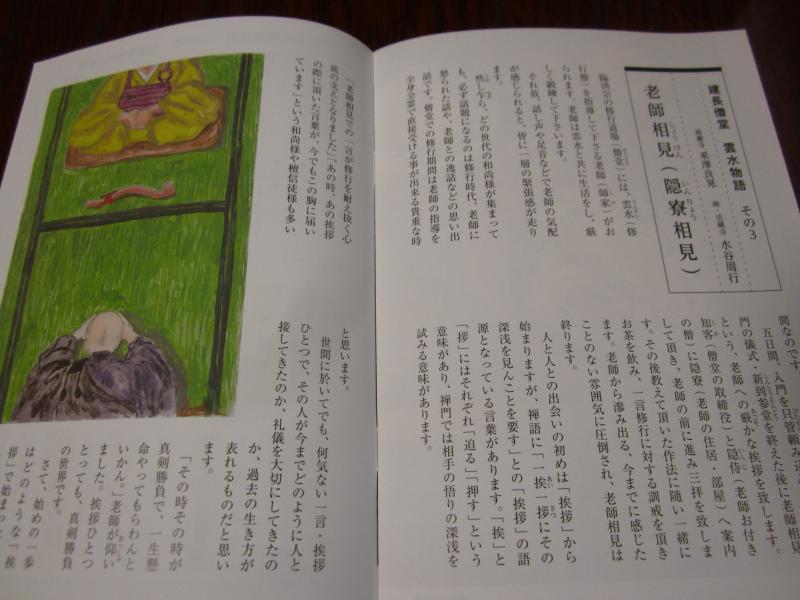 建長僧堂 雲水物語 その3
米澤良晃 画・法蔵寺 水谷周行
老師相見(隠寮相見)
しょうけん
いんりょう
臨済宗の修行道場(僧堂)には、雲水(修
行僧)を指導して下さる老師(師家)がお
られます。老師は雲水と共に生活をし、厳
しく鍛錬して下さいます。
それ故、話し声や足音などで老師の気配
が感じられると、皆に一層の緊張感が走り
ます。
然しながら、どの世代の和尚様が集まって
も、必ず話題になるのは修行時代、老師に
怒られた話や、老師との逸話などの思い出
話です。僧堂での修行期間は老師の指導を
全身全霊で直接受ける事が出来る貴重な時
間なのです。
五日間、入門を只管頼み込
門の儀式・新到参堂を終えた後に老師相見
という、老師への厳かな挨拶を致します。
知客(僧堂の取締役)と隠侍(老師お付き
の僧)に隠寮(老師の住居・部屋)へ案内
して頂き、老師の前に進み三拝を致しま
す。その後教えて頂いた作法に随い一緒に
お茶を飲み、一言修行に対する訓戒を頂き
ます。老師から滲み出る、今までに感じた
ことのない雰囲気に圧倒され、老師相見は
終ります。
人と人との出会いの初めは「挨拶」から
始まりますが、禅語に「一挨一拶にその
深浅を見んことを要す」との「挨拶」の語
源となっている言葉があります。「挨」と
「拶」にはそれぞれ「迫る」「押す」という
意味があり、禅門では相手の悟りの深浅を
試みる意味があります。
「老師相見での一言が修行を耐え抜く心
底の支えとなりました」「あの時、あの挨拶
の際に頂いた言葉が、今でもこの胸に届い
ています」という和尚様や檀信徒様も多い
と思います。
世間に於いてでも、何気ない一言・挨拶
ひとつで、その人が今までどのように人と
接してきたのか、礼儀を大切にしてきたの
か、過去の生き方が
表れるものだと思い
ます。
「その時その時が
真剣勝負で、一生懸
命やってもらわんと
いかん。」老師が仰い
ました。挨拶ひとつ
とっても、真剣勝負
の世界です。
さて、始めの一歩
はどのような「挨
拶」で始まった